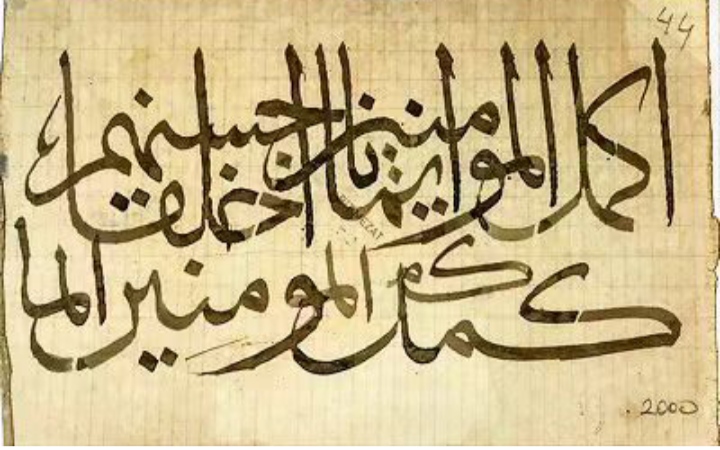 44
اكمل المومنين ايمانا احسنهم خلقا
كمل المومنين الما
2000